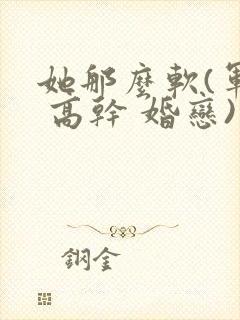 她那麼軟(軍
高幹 婚戀)
鋼金